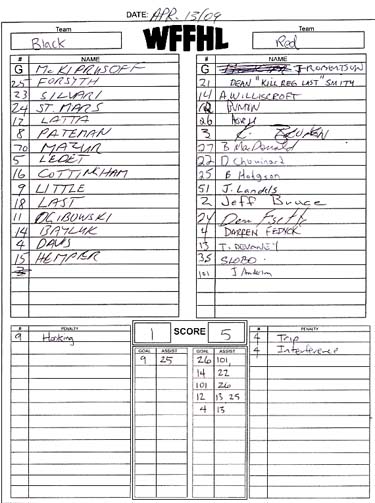 DATE: APR. 13/09
Team
Black
WFFHL
Team
Red
# NAME
G McKIPRUSOFF
25 FORSYTH
23 SILVARI
24 ST. MARS
17 LATTA
8 PATEMAN
70 MAZUR
5 LEDET
16 COTTINGHAM
9 LITTLE
18 LAST
11 OGIBOWSKI
14 BAYLUK
4 DAVIS
15 HEMPER
# NAME
G J ROBERTSON
21 DEAN "KILL REG LAST" SMITY
14 A WILLISCROFT
12
26
3 K.
27 B MacDonald
22 D Chouinard
25 B Hodgson
51 J. Landels
2 Jeff Bruce
24 Dan
4 DARREN FEDYCK
13 T. DEVANEY
35 SLOBO.
101 J
# PENALTY
9 Hooking
1 SCORE 5
GOAL ASSIST GOAL ASSIST
9 25 26 101,
14 22
101 26
12 13 25
4 13
# PENALTY
4 Trip
4 Interference